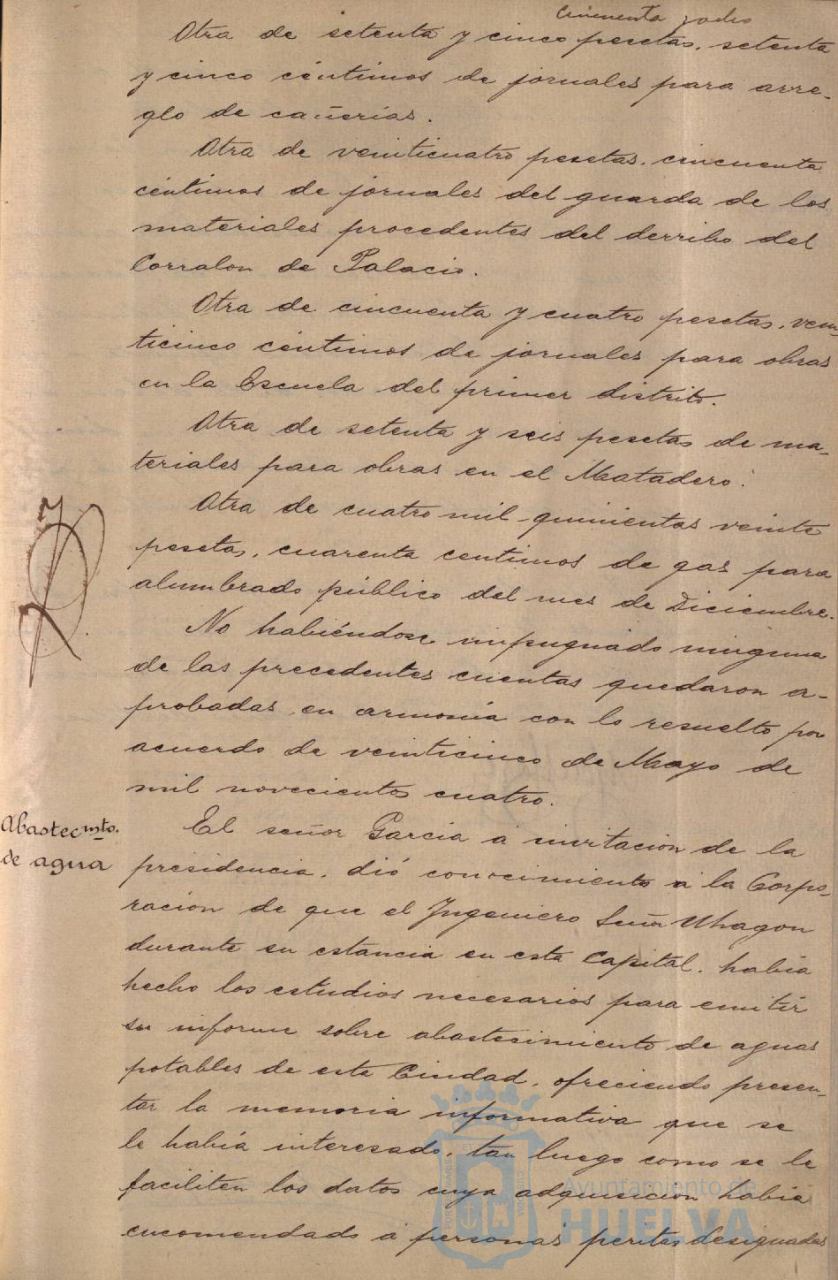 cincuenta y ocho
Otra de setenta y cinco pesetas, setenta
y cinco céntimos de jornales para arre-
glo de cañerías.
Otra de veinticuatro pesetas, cincuenta
céntimos de jornales del guarda de los
materiales procedentes del derribo del
Corralon de Palacio.
Otra de cincuenta y cuatro pesetas, vein-
ticinco céntimos de jornales para obras
en la Escuela del primer distrito.
Otra de setenta y seis pesetas de ma-
teriales para obras en el Matadero.
Otra de cuatro mil quinientas veinte
pesetas, cuarenta centimos de gas para
alumbrado público del mes de Diciembre.
No habiéndose impugnado ninguna
de las precedentes cuentas quedaron a-
probadas en armonía con lo resuelto por
acuerdo de veinticinco de Mayo de
mil novecientos cuatro.
Abastecmto.
de agua
El señor García á invitación de la
presidencia, dió conocimiento á la Corpo-
ración de que el Ingeniero Señor Uhagon
durante su estancia en esta Capital, había
hecho los estudios necesarios para emitir
su informe sobre abastecimiento de aguas
potables de esta Ciudad, ofreciendo presen-
tar la memoria informativa que se
le había interesado, tan luego como se le
faciliten los datos cuya adquisición había
encomendado á personas peritas designadas
Ayuntamiento de
HUELVA